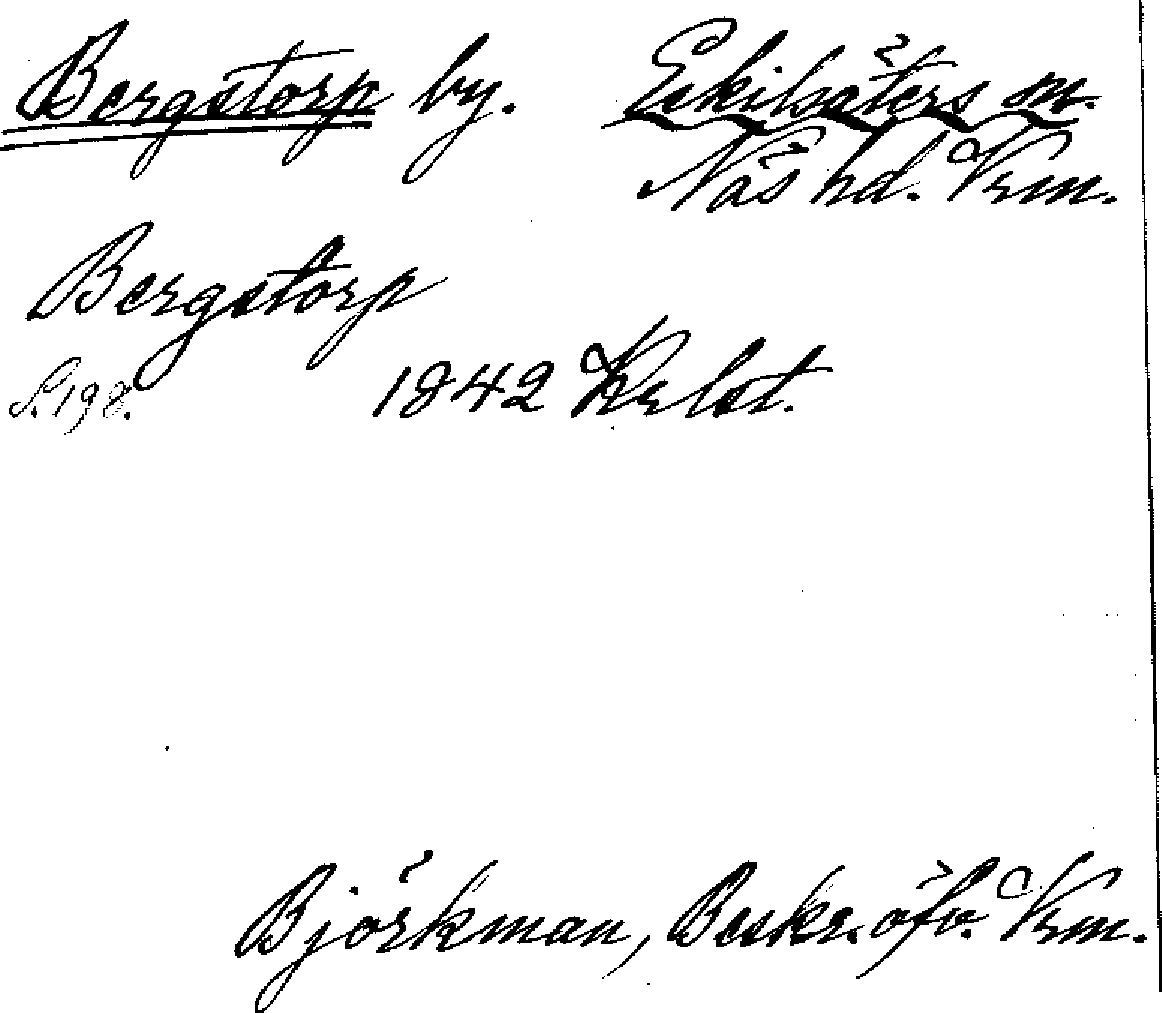 Bergstorp by. Eskilsäters sn.
Näs hd. Vrm.
Bergstorp
S. 198. 1842
Björkman, Beskr. öfv. Vrm.